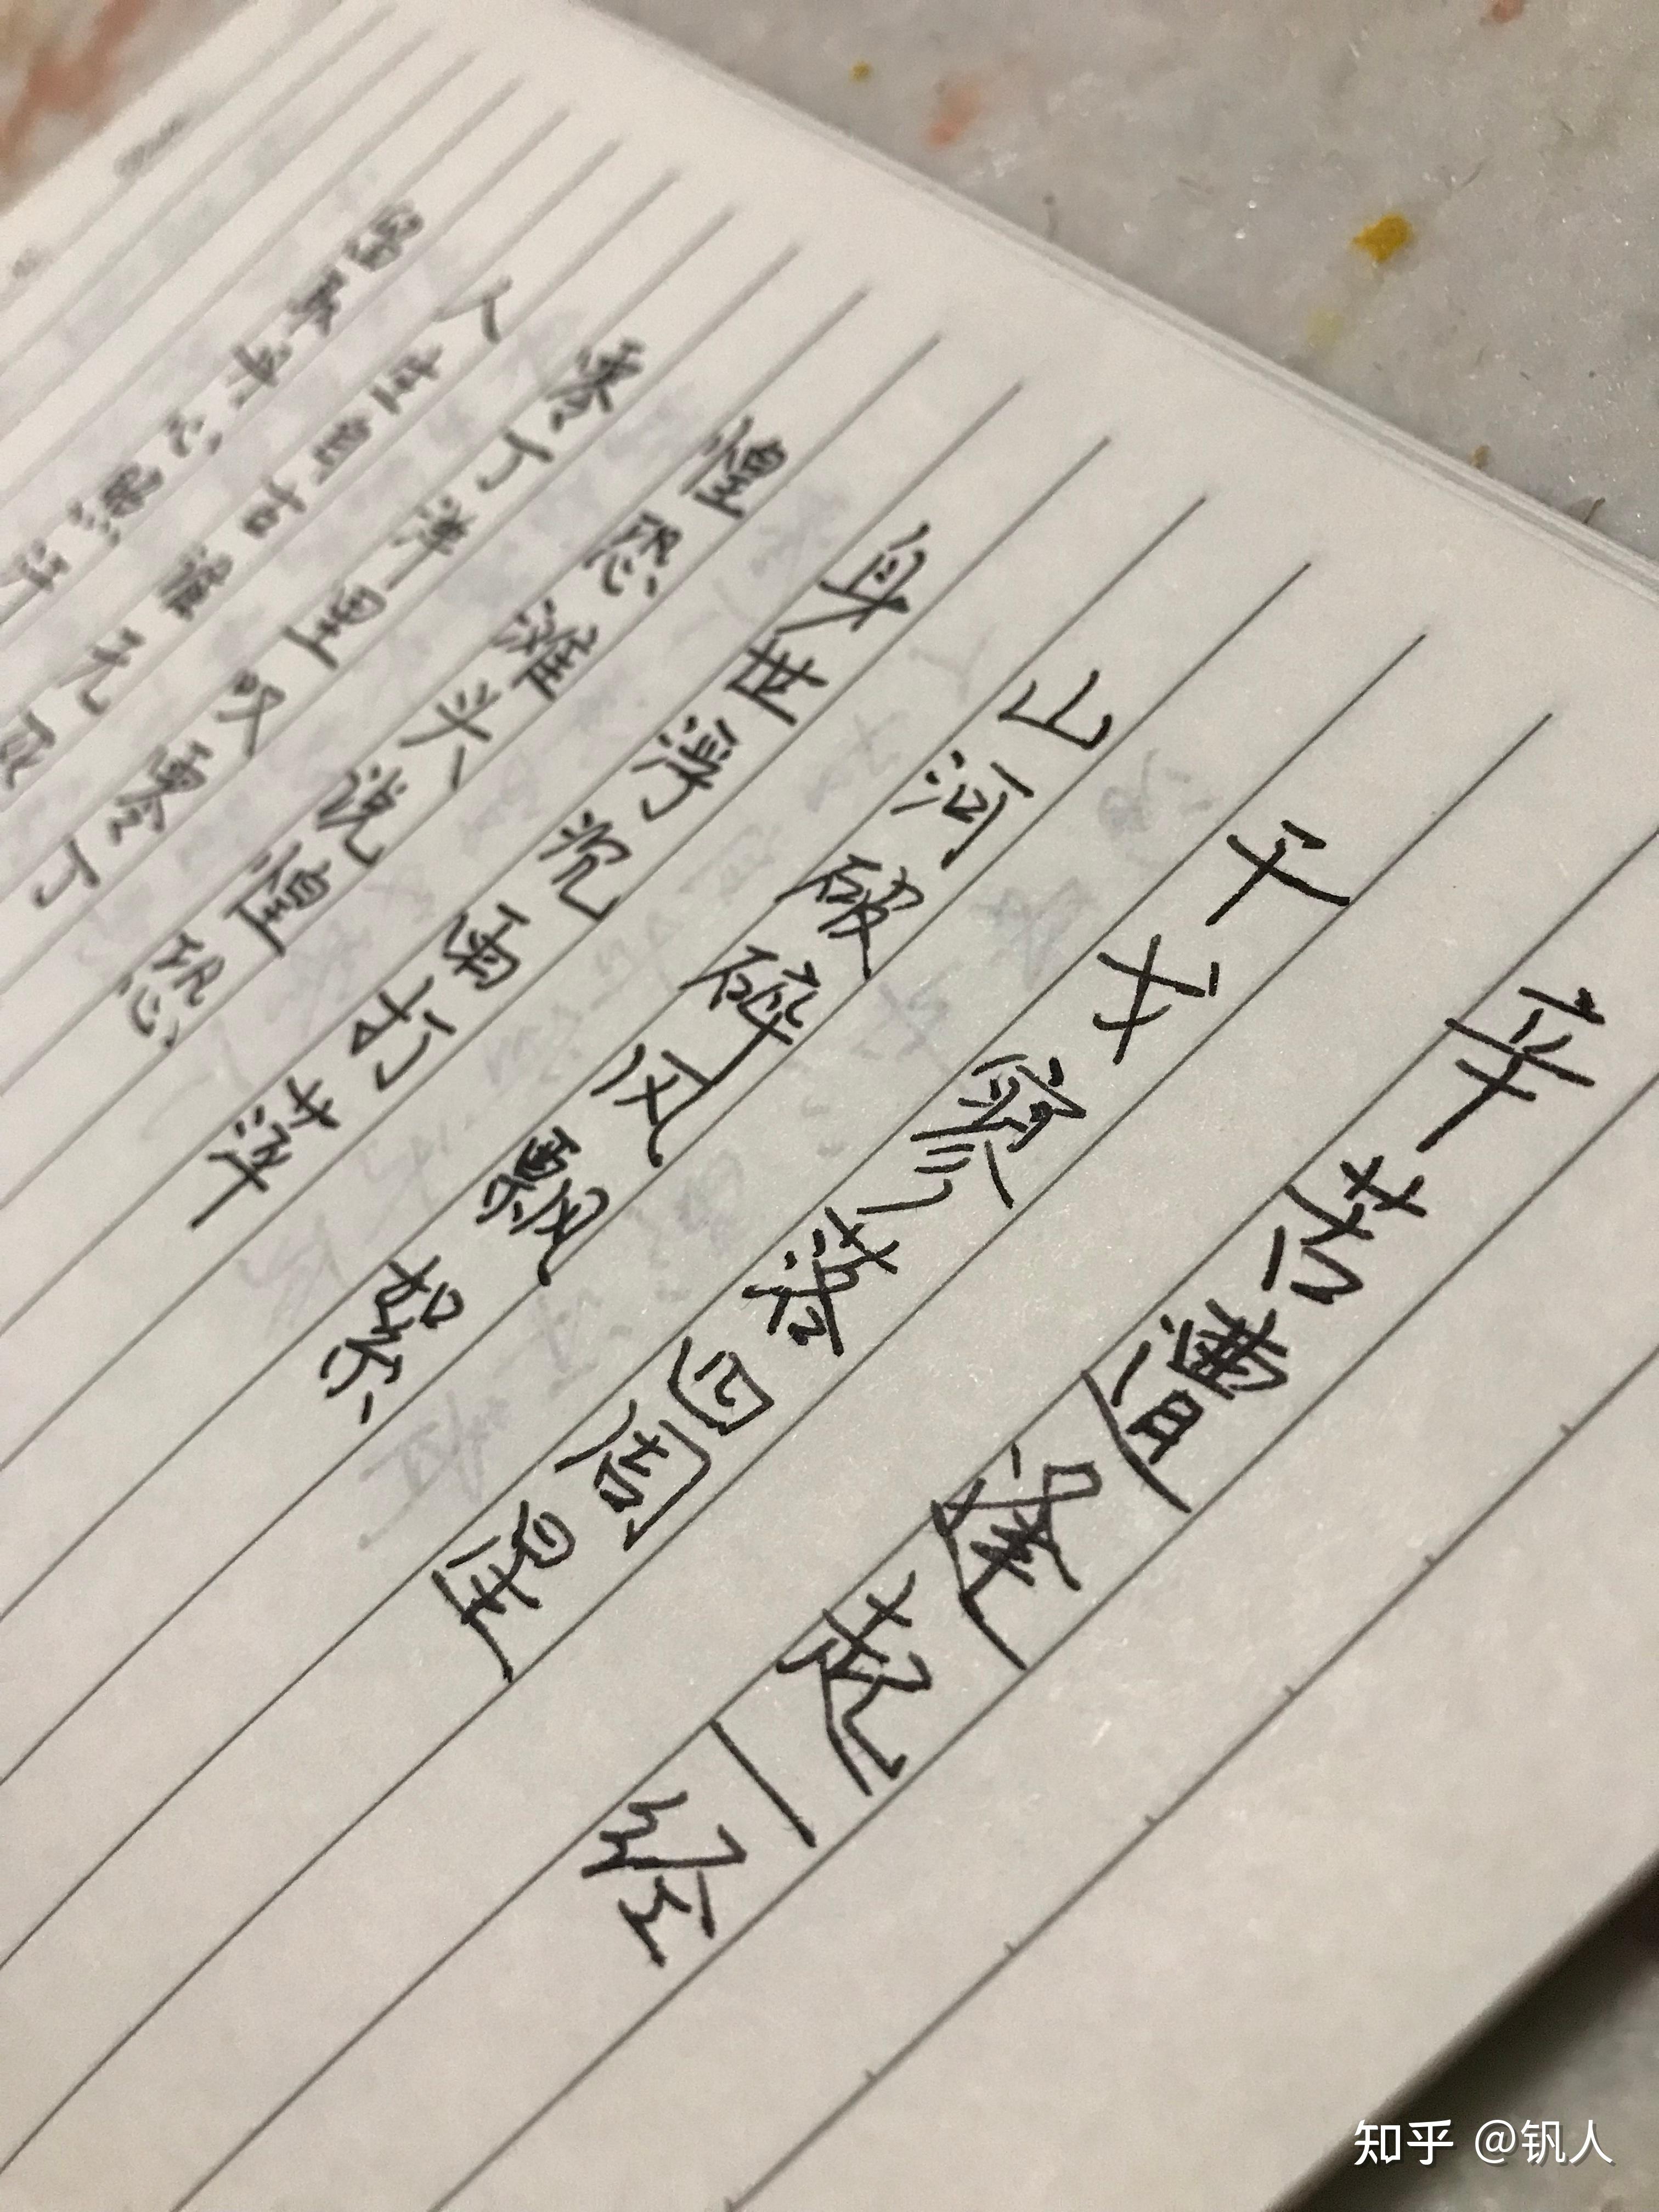 辛苦遭逢起一经
干戈寥落四周星
山河破碎风飘絮
身世浮沉雨打萍
惶恐滩头说惶恐
零丁洋里叹零丁
人生自古谁无死
留取丹心照汗
知乎 @钒人